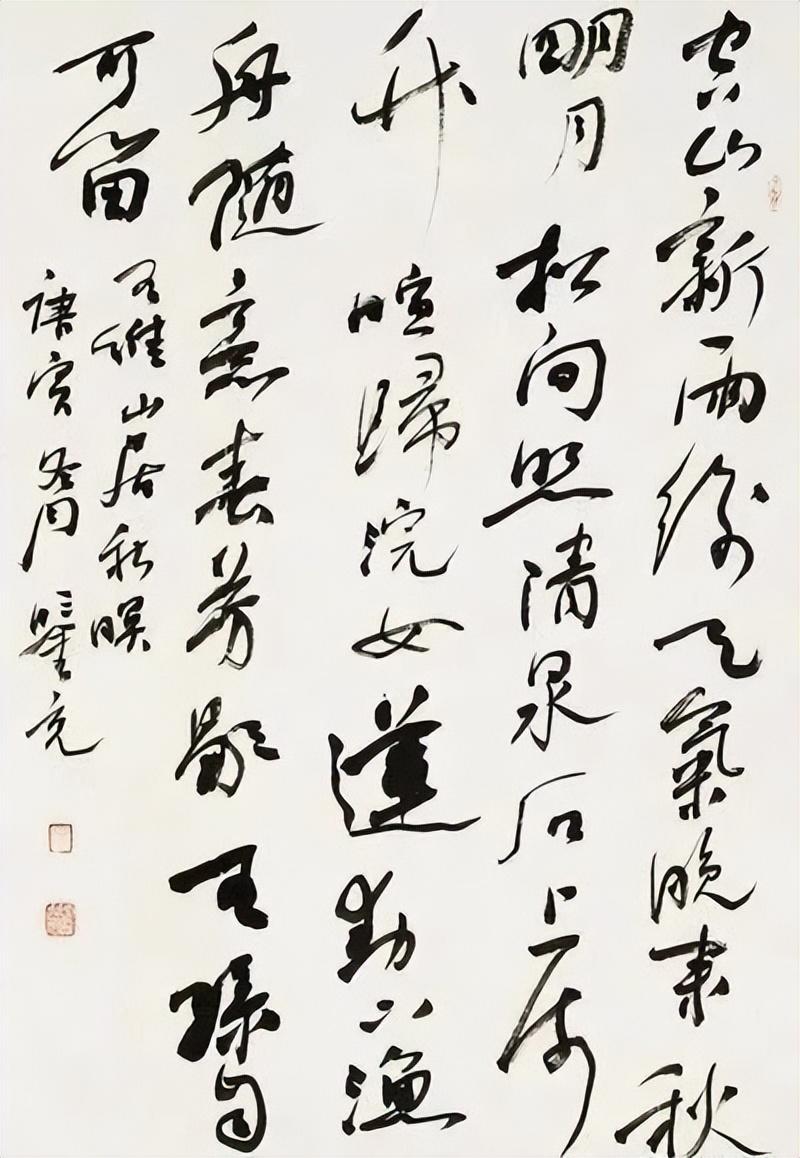 空山新雨後天氣晚来秋
明月松间照清泉石上流
竹喧歸浣女蓮動下渔
舟随意春芳歇王孫自
可留
王維山居秋暝
庚寅